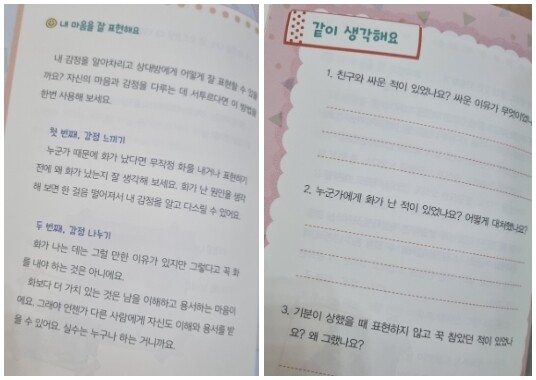 내 마음을 잘 표현해요
내 감정을 알아차리고 상대방에게 어떻게 잘 표현할 수 있을
까요? 자신의 마음과 감정을 다루는 데 서투르다면 이 방법을
한번 사용해 보세요.
첫 번째, 감정 느끼기
누군가 때문에 화가 났다면 무작정 화를 내거나 표현하기
전에 왜 화가 났는지 잘 생각해 보세요. 화가 난 원인을 생각
해 보면 한 걸음 떨어져서 내 감정을 알고 다스릴 수 있어요.
두 번째, 감정 나누기
화가 나는 데는 그럴 만한 이유가 있지만 그렇다고 꼭 화
를 내야 하는 것은 아니에요.
화보다 더 가치 있는 것은 남을 이해하고 용서하는 마음이
에요. 그래야 언젠가 다른 사람에게 자신도 이해와 용서를 받
을 수 있어요. 실수는 누구나 하는 거니까요.
같이 생각해요
1. 친구와 싸운 적이 있었나요? 싸운 이유가 무엇이었나
2. 누군가에게 화가 난 적이 있었나요? 어떻게 대처했나요?
3. 기분이 상했을 때 표현하지 않고 꾹 참았던 적이 있었나
요? 왜 그랬나요?